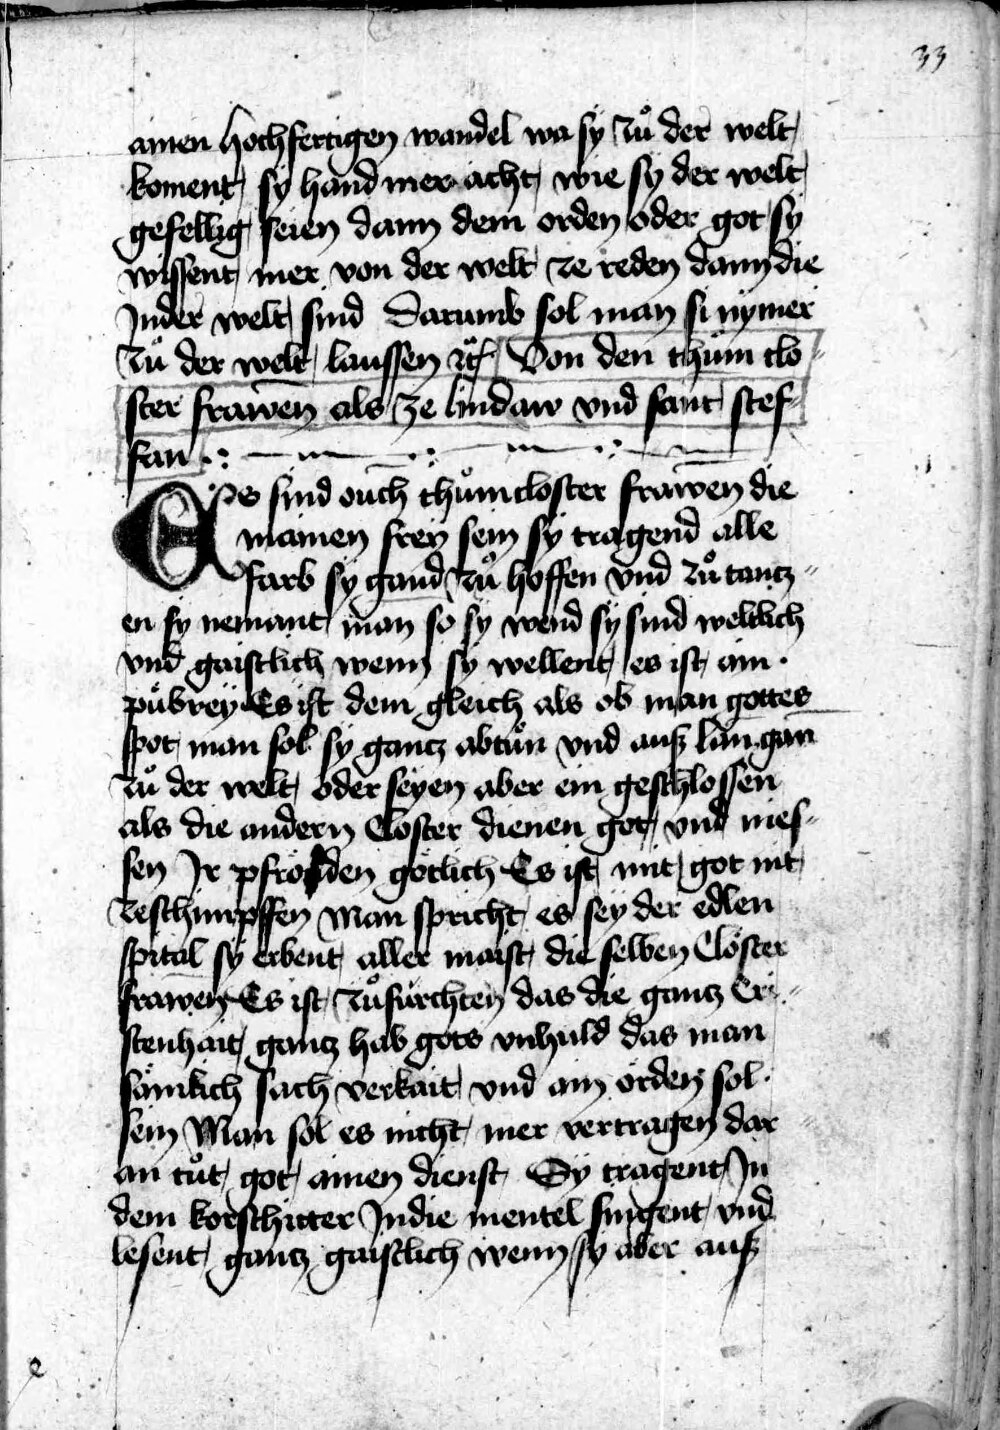 33
ainen hochfertigen wandel wa sy zů der welt
koment sy hand mer acht wie sy der welt
gefellig seien dann dem orden oder got sy
wissent mer von der welt ze reden dann die
Jn der welt sind Darumb sol man si nymer
zů der welt laussen ꝛc Von den thům clo-
ster frawen als ze lindaw vnd sant stef-
fan
Es sind ouch thůmcloster frawen die
mainen frey sein sy tragend alle
farb sy gand zů hoffen vnd zů tantz-
en sy nemant man so sy wend sy sind weltlich
vnd gaistlich wenn sy wellent es ist ain
půbrey Es ist dem gleich als ob man gottes
spot man sol sy gantz abtůn vnd auß lan gan
zů der welt oder seyen aber ein geschlossen
als die andern Closter dienen got vnd nies-
sen Jr pfrönden götlich Es ist mit got nit
zeschimpffen Man spricht es sey der edlen
spital sy erbent aller maist die selben Clöster
frawen Es ist zůfürchten das die gantz Cri-
stenhait gantz hab gots vnhuld das man
sömlich sach verkait vnd ain orden sol
sein Man sol es nicht mer vertragen dar
an tůt got ainen dienst Sy tragent Jn
dem korschitter Jndie mentel singent vnd
lesent gantz gaistlich wenn sy aber auß
e